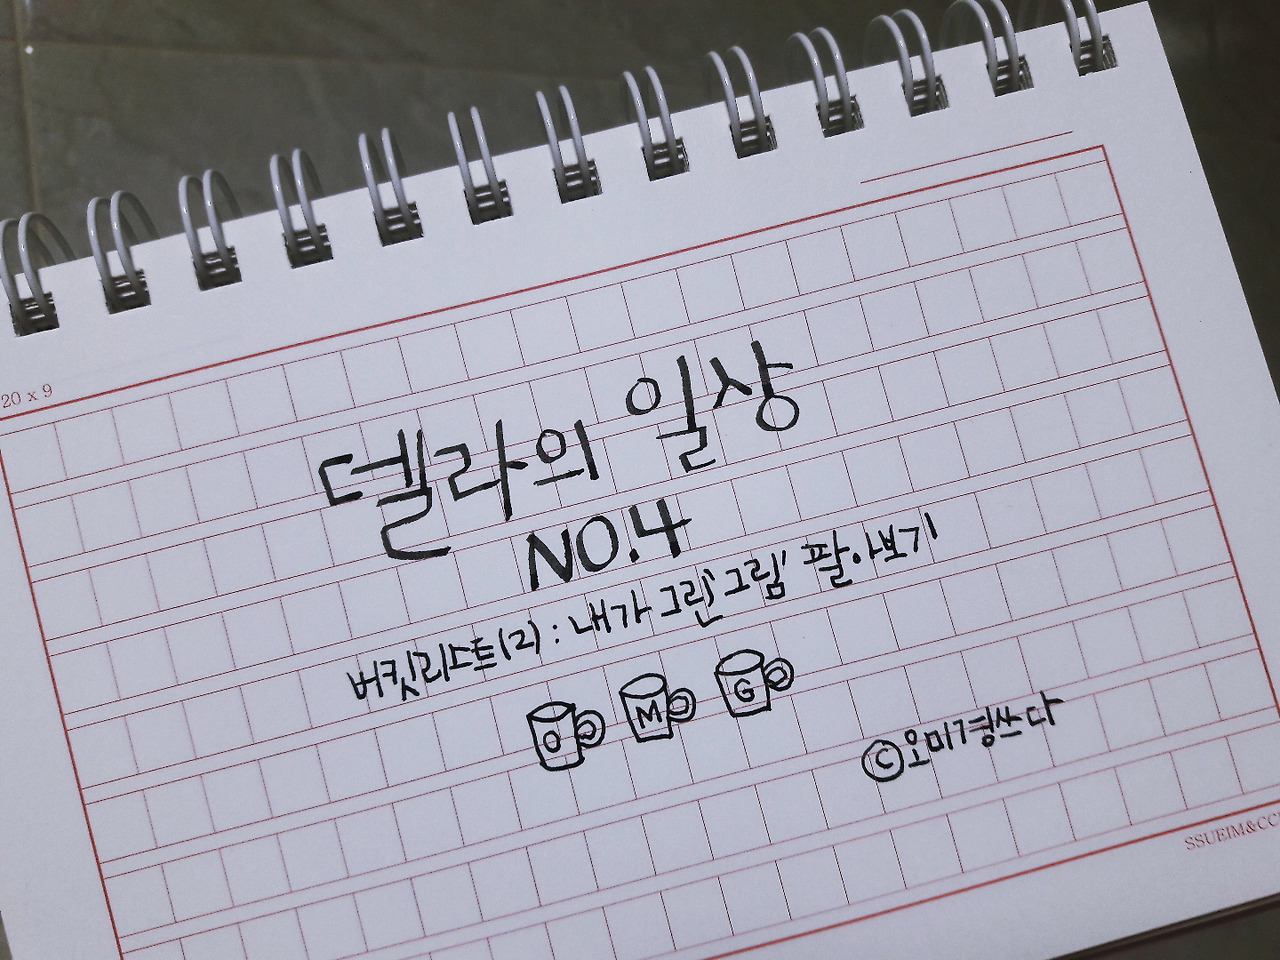 20 x 9
델라의 일상
NO.4
버킷리스트(2) : 내가 그린 '그림' 팔아보기
O M G
©오미경쓰다
SSUEIM&CC